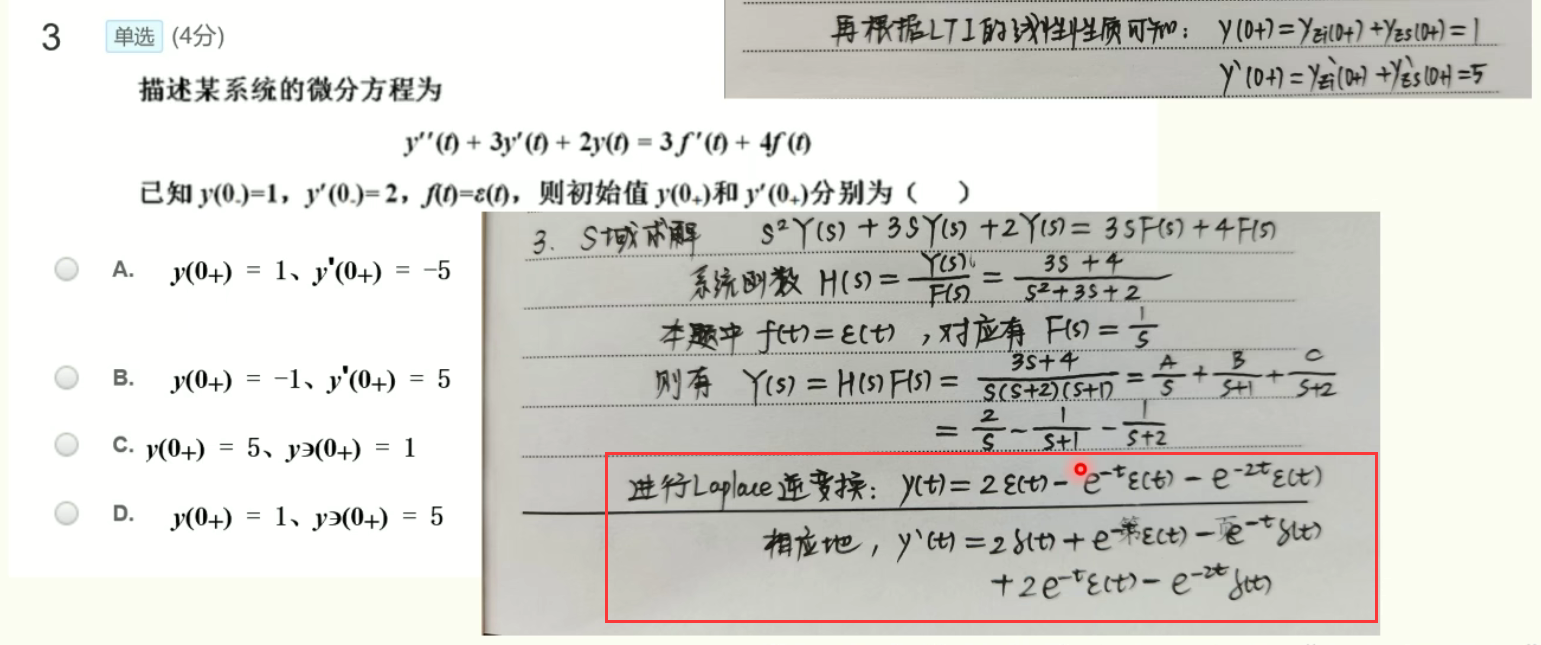 3 单选 (4分)
描述某系统的微分方程为
y''(t) + 3y'(t) + 2y(t) = 3f'(t) + 4f(t)
已知 y(0-)=1，y'(0-)=2，f(t)=ε(t)，则初始值 y(0+)和 y'(0+)分别为（ ）
A. y(0+) = 1、y'(0+) = -5
B. y(0+) = -1、y'(0+) = 5
C. y(0+) = 5、y϶(0+) = 1
D. y(0+) = 1、y϶(0+) = 5
再根据LTI的线性性质可知： y(0+)=yzi(0+)+yzs(0+)=1
y`(0+)=yzi`(0+)+yzs`(0+)=5
3. S域求解 S²Y(s)+3SY(s)+2Y(s)=3SF(s)+4F(s)
系统函数 H(s)=Y(s)/F(s)=3S+4/S²+3S+2
本题中 f(t)=ε(t)，对应有 F(s)=1/S
则有 Y(s)=H(s)F(s)=3S+4/S(S+2)(S+1)=A/S+B/S+1+C/S+2
=2/S-1/S+1-1/S+2
进行Laplace逆变换：y(t)=2ε(t)-e⁻ᵗε(t)-e⁻²ᵗε(t)
相应地，y`(t)=2δ(t)+e⁻ᵗε(t)-e⁻ᵗδ(t)
+2e⁻ᵗε(t)-e⁻²ᵗδ(t)